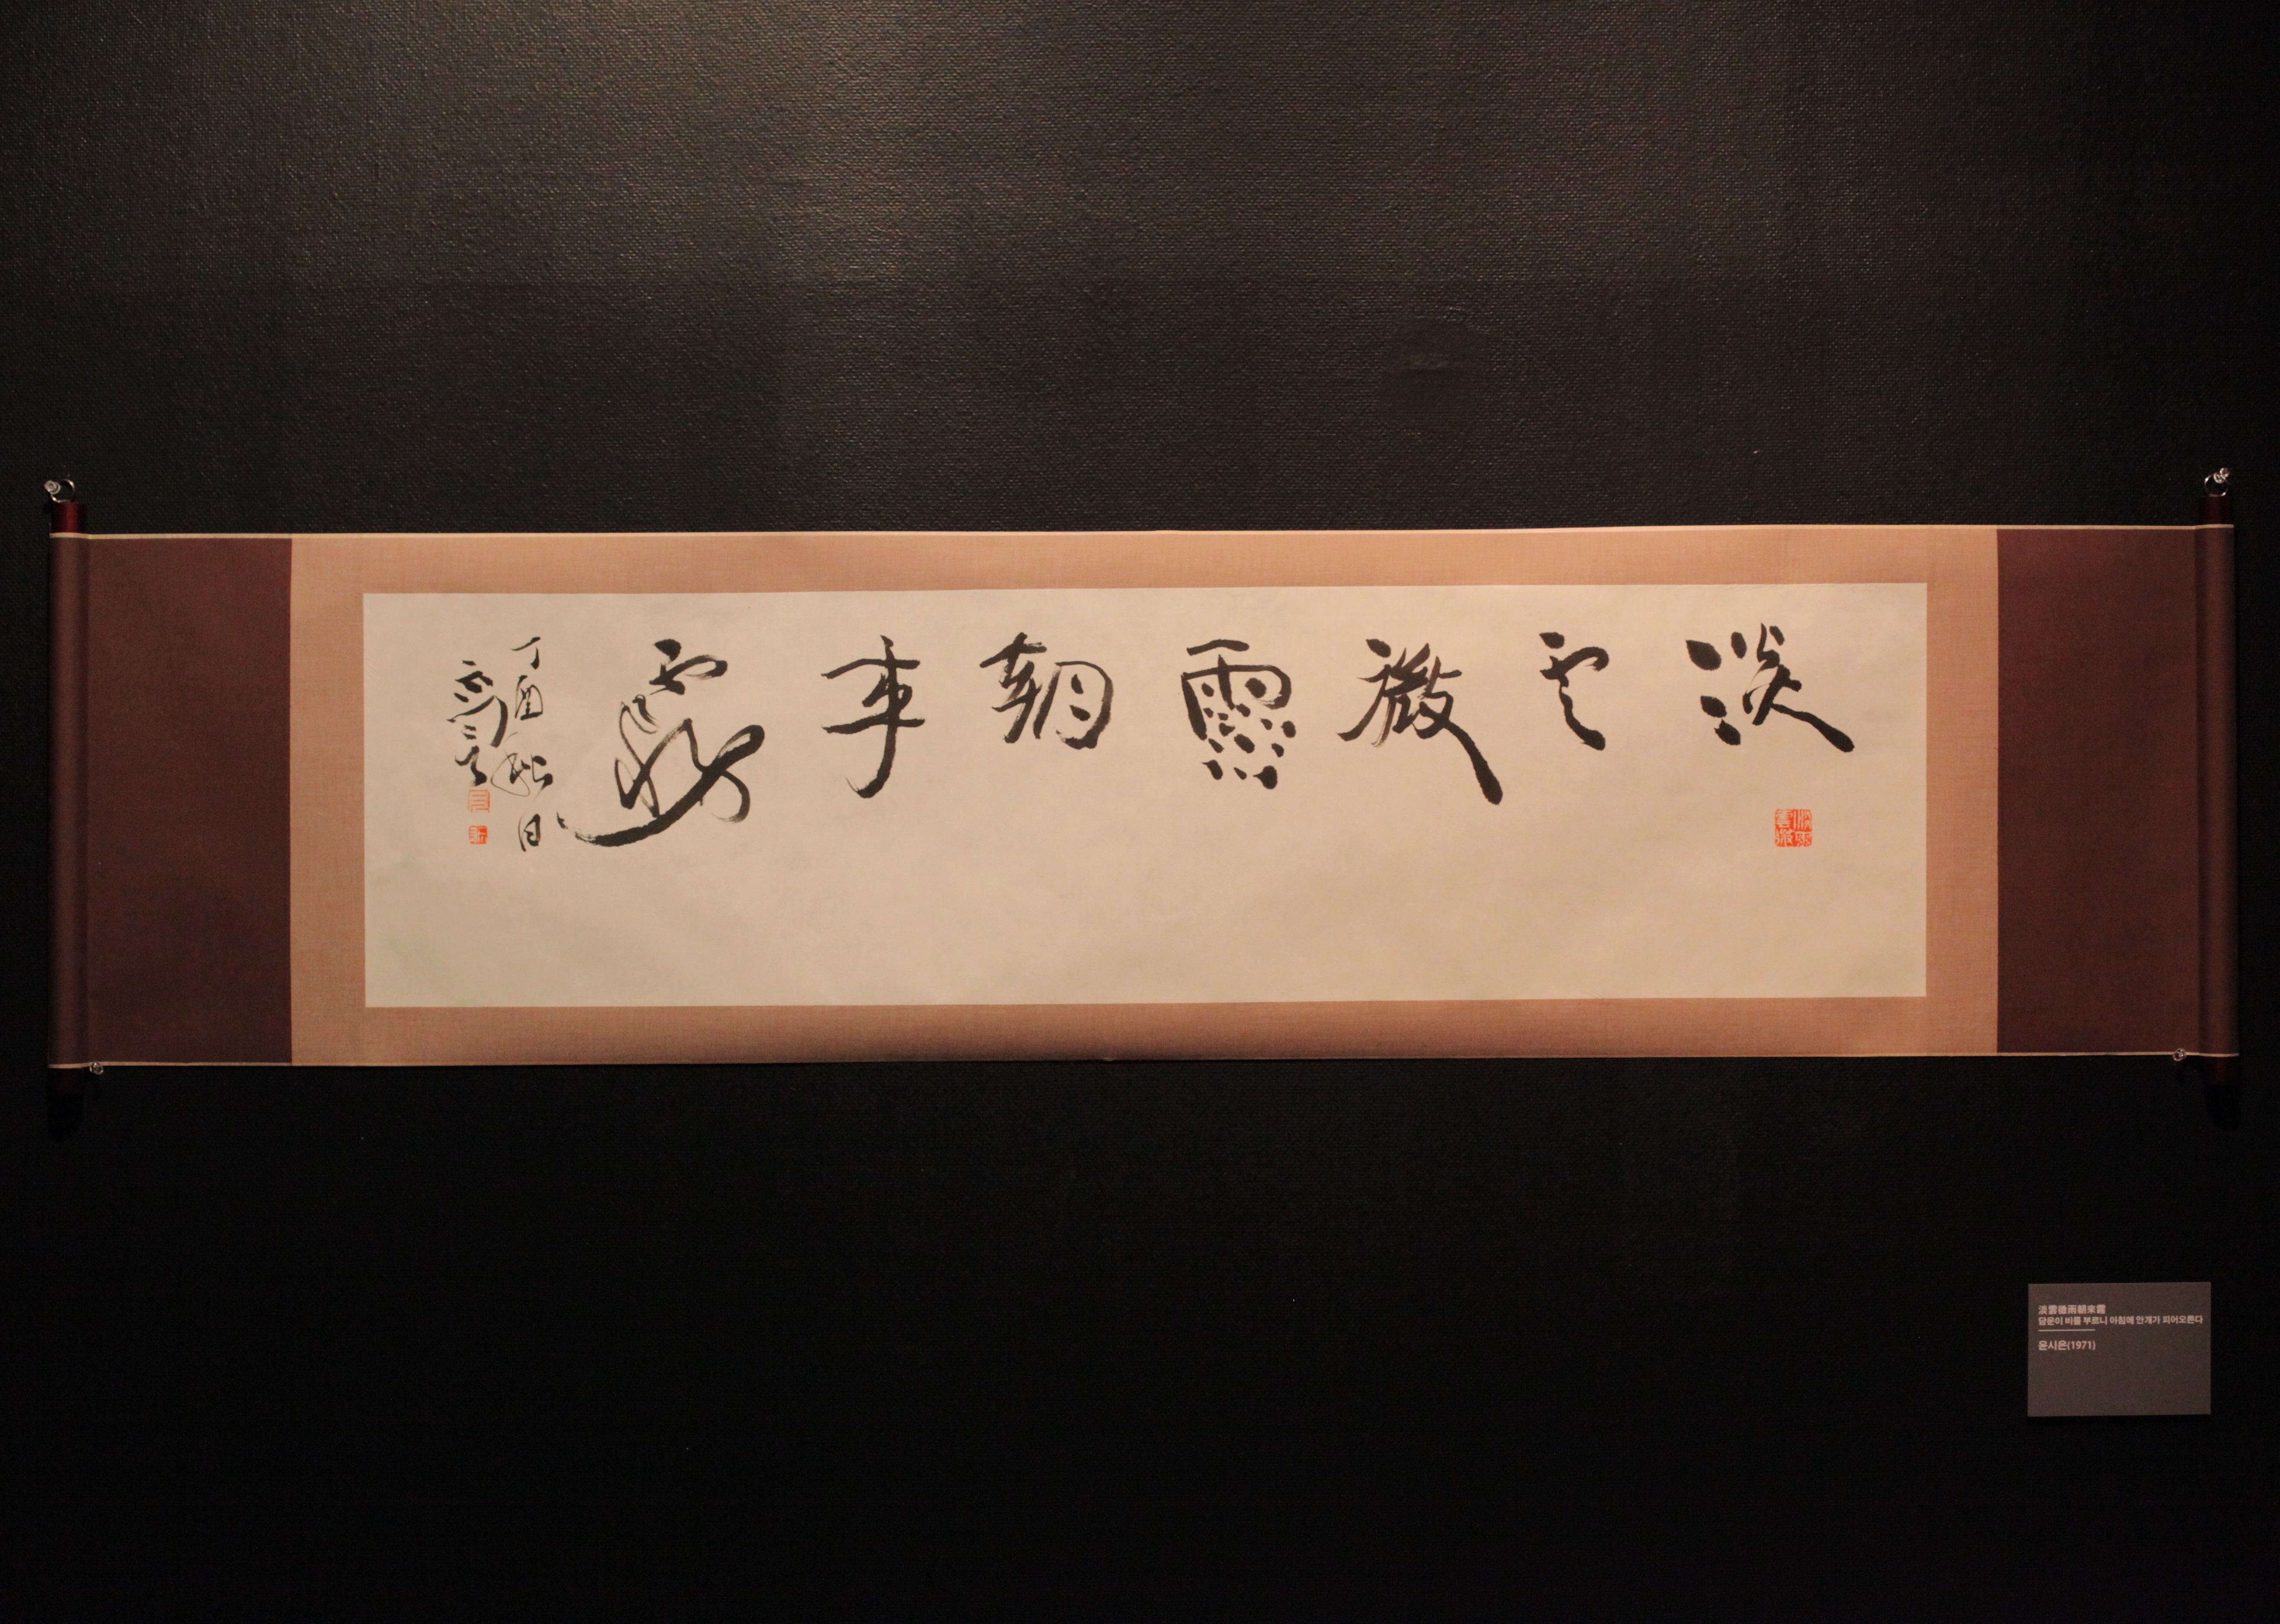 淡雲微雨朝来霧
丁酉秋日
淡雲微雨朝來霧
담운이 비를 부르니 아침에 안개가 피어오른다
윤시은(1971)